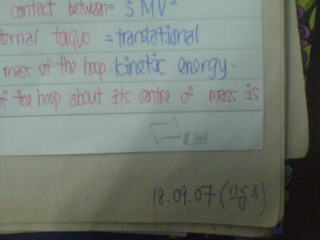 contact between = ½ MV²
ternal torque = translational
mass of the hoop. kinetic energy.
f the hoop about its centre of mass is
18.09.07